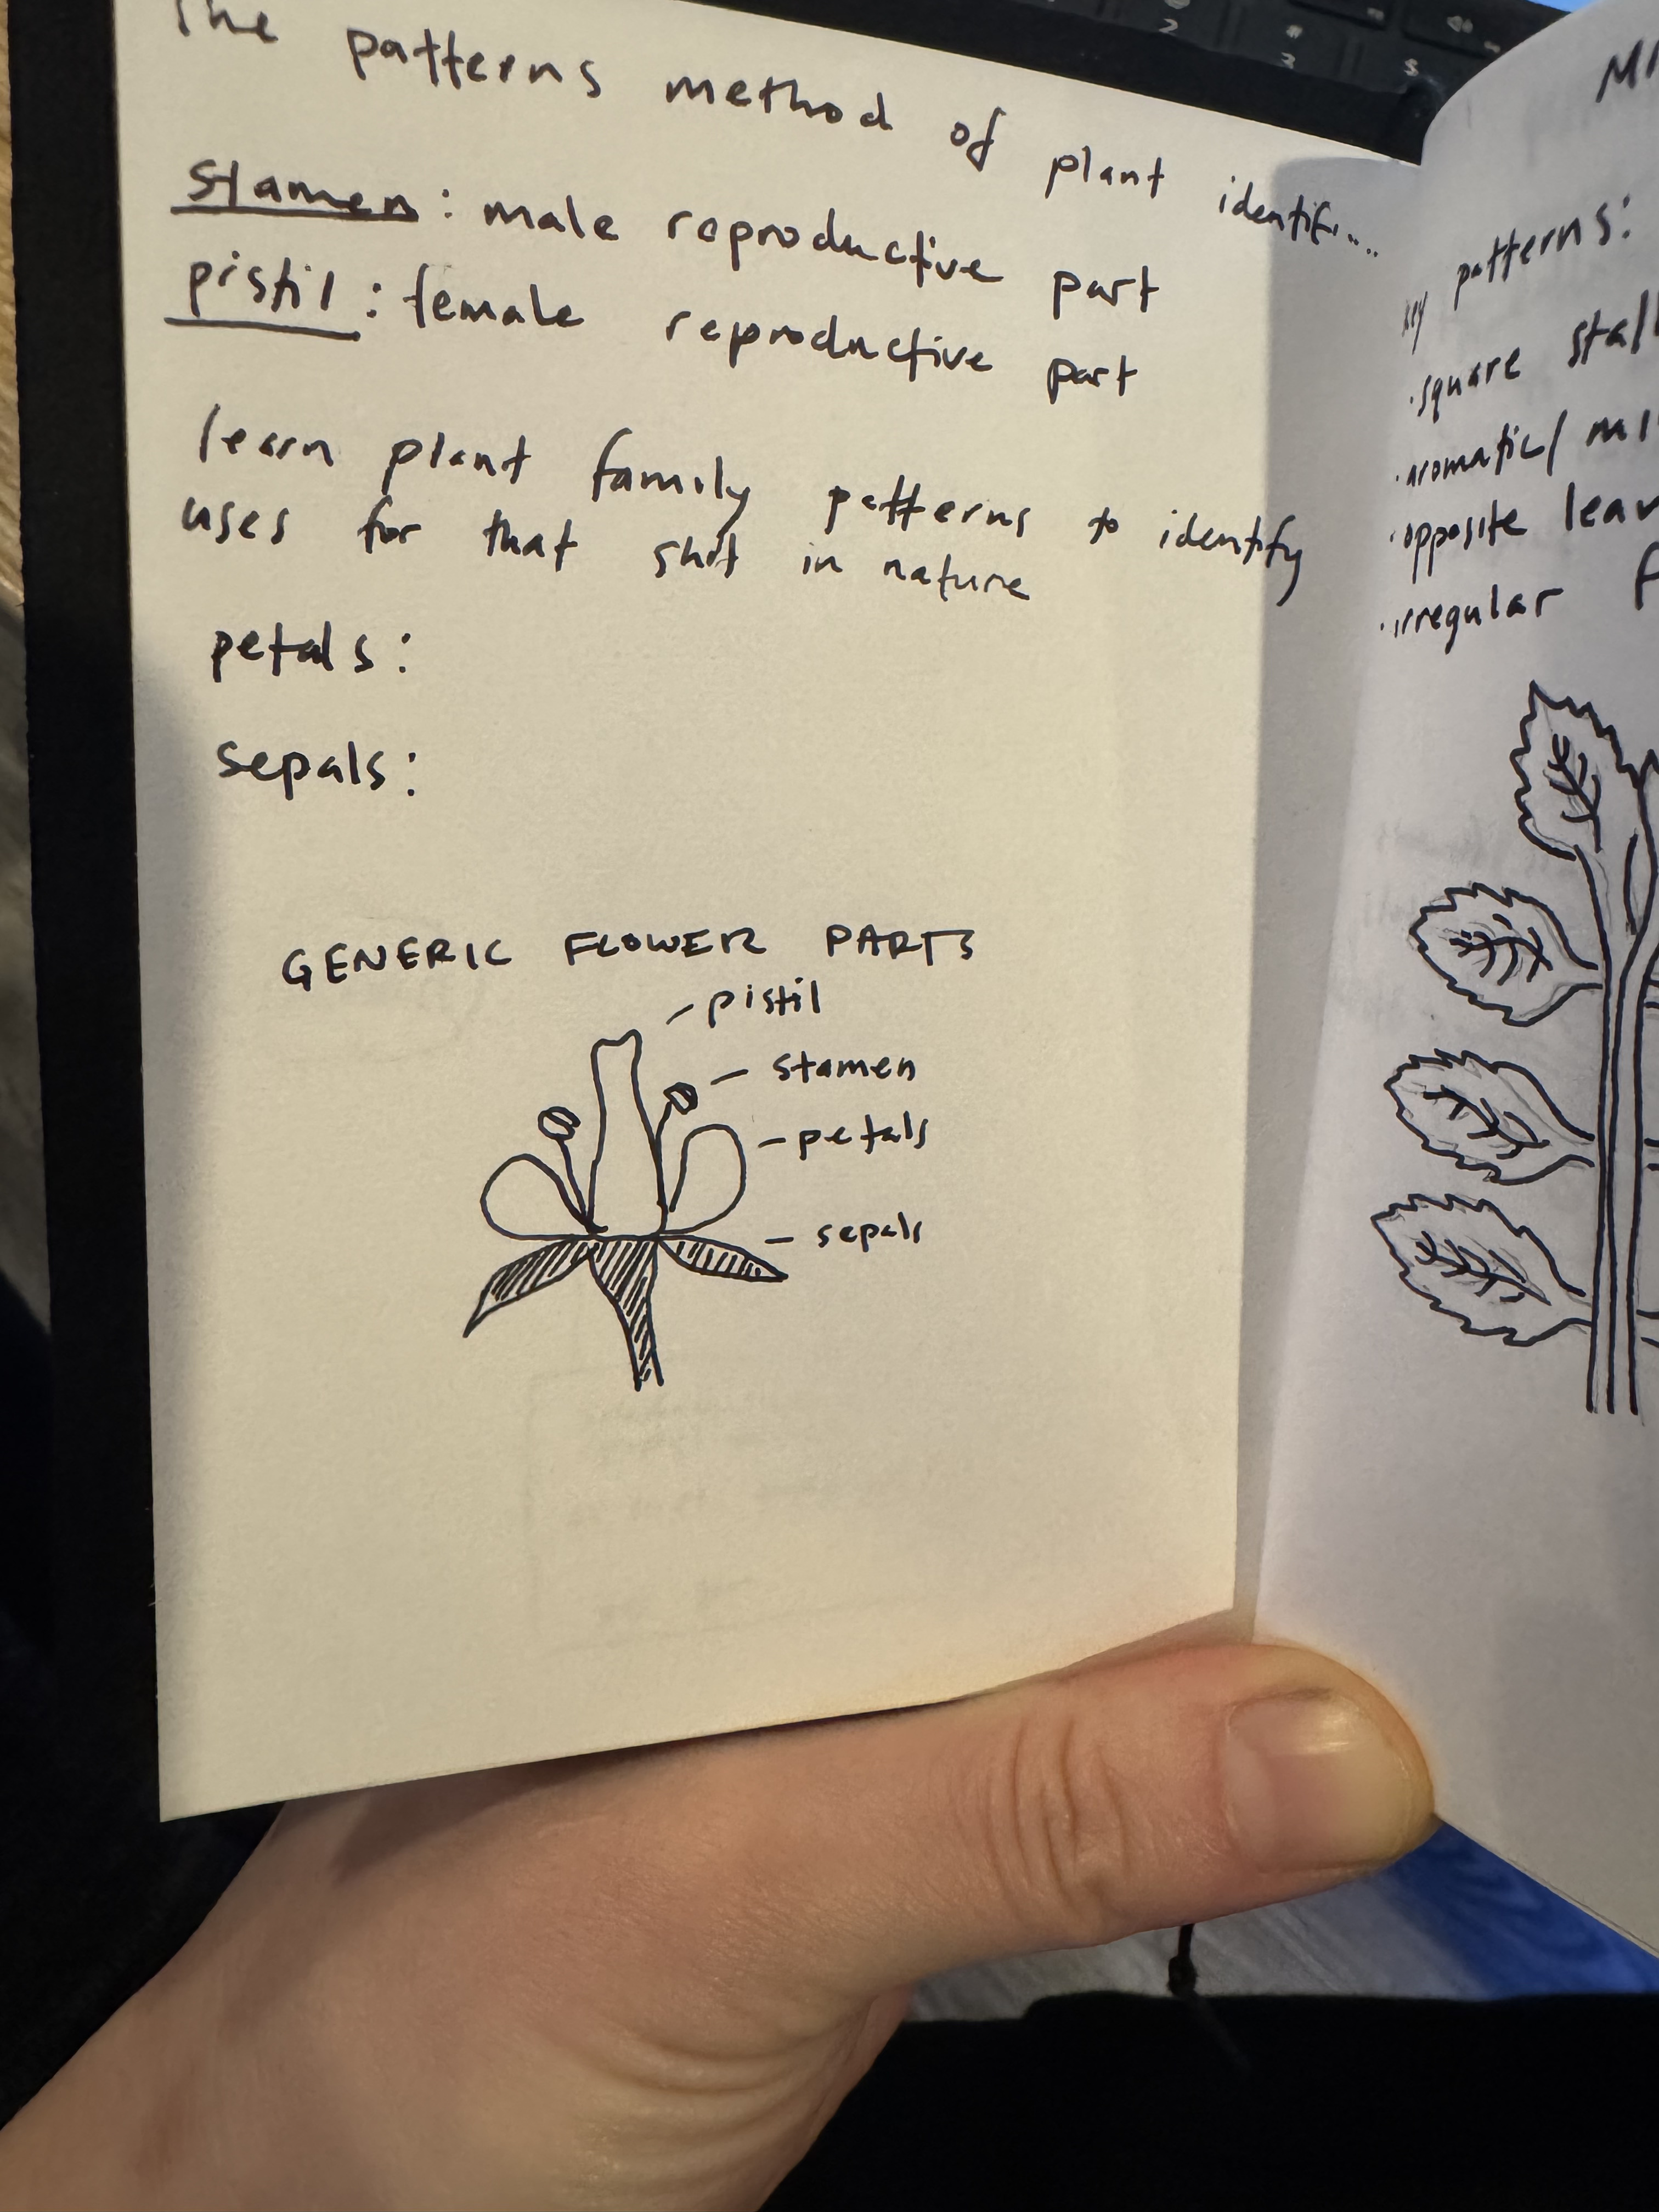 The patterns method of plant identif...
stamen: male reproductive part
pistil: female reproductive part
learn plant family patterns to identify
uses for that shit in nature
petals:
sepals:
GENERIC FLOWER PARTS
pistil
stamen
petals
sepals
key patterns:
·square
·aromatic/
·opposite
·irregular
2
#
3